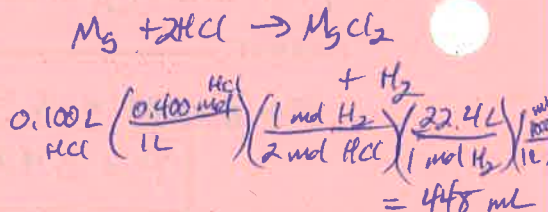 Mg + 2HCl → MgCl₂
+ H₂
0.100 L HCl (0.400 mol HCl / 1L)(1 mol H₂ / 2 mol HCl)(22.4 L / 1 mol H₂)(mL / 1L
= 448 mL